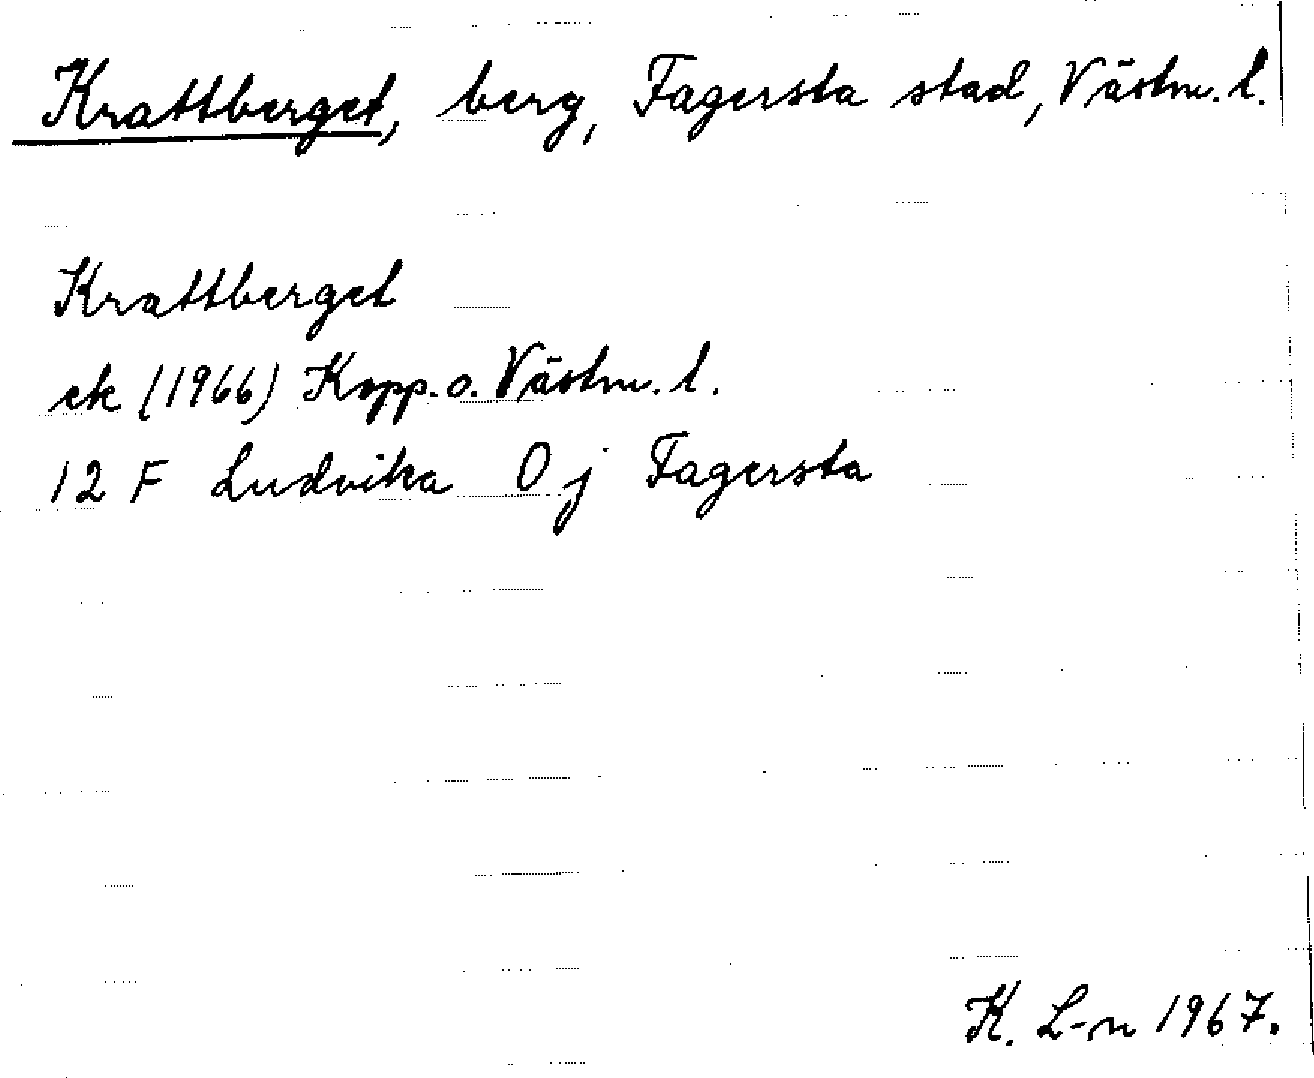 Krattberget, berg, Fagersta stad, Västm. l.
Krattberget
ek (1966) Kopp. o. Västm. l.
12 F Ludvika 0 j Fagersta
K. L-n 1967.